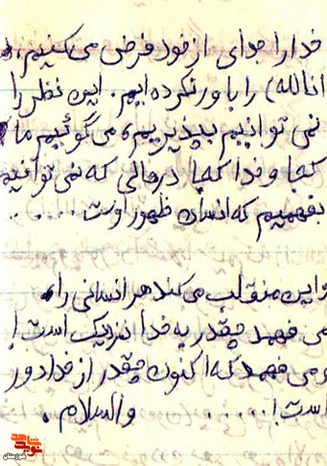 خدا را جدای از خود فرض می‌کنیم،
انالله) را باور نکرده‌ایم. این نظر را
نمی‌توانیم بپذیریم، می‌گوئیم ما
کجا و خدا کجا درحالی که نمی‌توانیم
بفهمیم که انسان ظهور اوست.....
و این منقلب می‌کند هر انسانی را،
می‌فهمد چقدر به خدا نزدیک است!
و می‌فهمد که اکنون چقدر از خدا دور
است!..... والسلام.